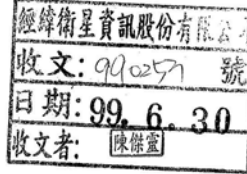 經緯衛星資訊股份有限公
收文: 990257 號
日期: 99. 6. 30
收文者: 陳傑靈